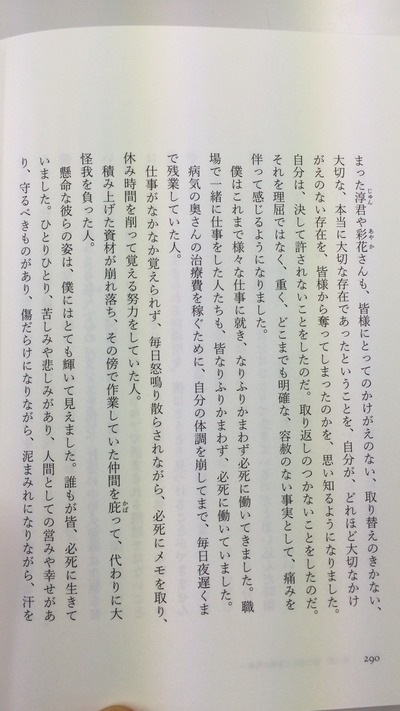 まった淳君や彩花さんも、皆様にとってのかけがえのない、取り替えのきかない、
じゅん
あやか
大切な、本当に大切な存在であったということを、自分が、どれほど大切なかけ
がえのない存在を、皆様から奪ってしまったのかを、思い知るようになりました。
自分は、決して許されないことをしたのだ。取り返しのつかないことをしたのだ。
それを理屈ではなく、重く、どこまでも明確な、容赦のない事実として、痛みを
伴って感じるようになりました。
僕はこれまで様々な仕事に就き、なりふりかまわず必死に働いてきました。職
場で一緒に仕事をした人たちも、皆なりふりかまわず、必死に働いていました。
病気の奥さんの治療費を稼ぐために、自分の体調を崩してまで、毎日夜遅くま
で残業していた人。
仕事がなかなか覚えられず、毎日怒鳴り散らされながら、必死にメモを取り、
休み時間を削って覚える努力をしていた人。
積み上げた資材が崩れ落ち、その傍で作業していた仲間を庇って、代わりに大
かば
怪我を負った人。
懸命な彼らの姿は、僕にはとても輝いて見えました。誰もが皆、必死に生きて
いました。ひとりひとり、苦しみや悲しみがあり、人間としての営みや幸せがあ
り、守るべきものがあり、傷だらけになりながら、泥まみれになりながら、汗を
290